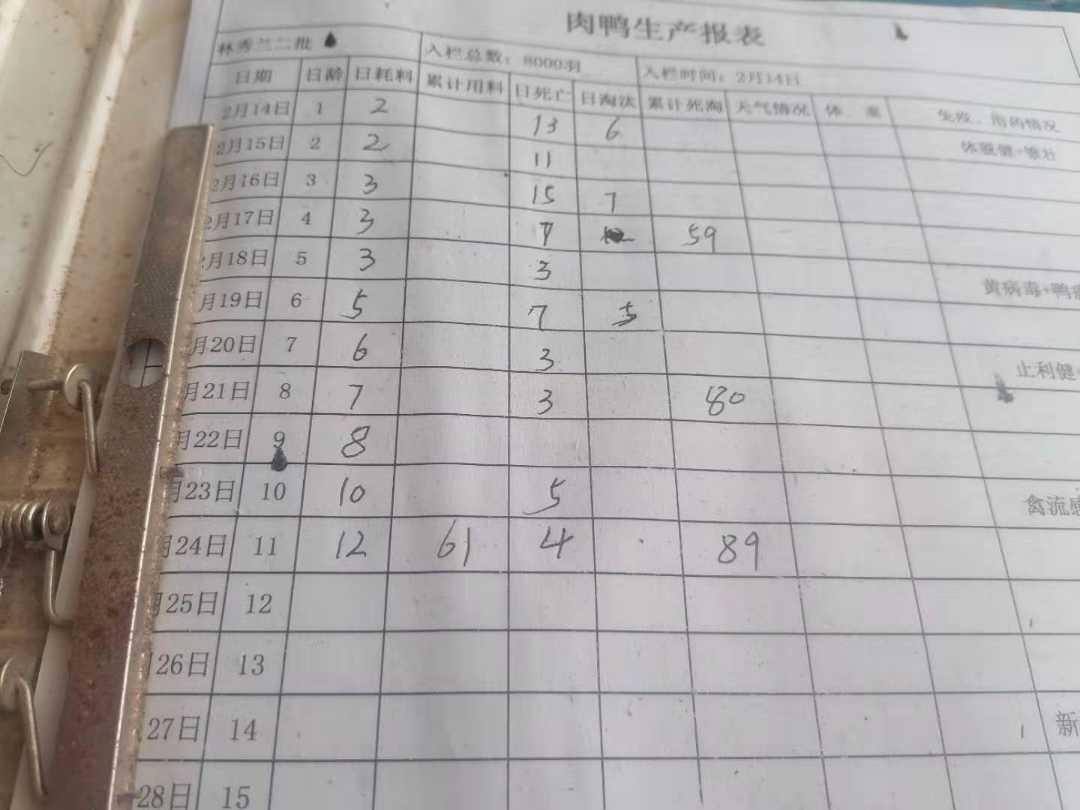 肉鸭生产报表
林秀兰二批 入栏总数：8000羽 入栏时间：2月14日
日期 日龄 日耗料 累计用料 日死亡 日淘汰 累计死淘 天气情况 体 重 免疫、用药情况
2月14日 1 2 13 6
2月15日 2 2 11
2月16日 3 3 15 7
2月17日 4 3 7 59
月18日 5 3 3
月19日 6 5 7 5
月20日 7 6 3
月21日 8 7 3 80
月22日 9 8
月23日 10 10 5 禽流感
月24日 11 12 61 4 89
月25日 12
月26日 13
27日 14 新
28日 15
黄病毒+鸭
止利健